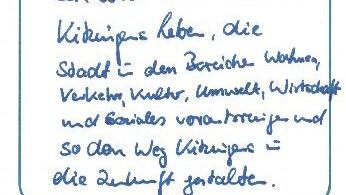 Kitzingens leben, die
Stadt in den Bereichen Wohnen,
Verkehr, Kultur, Umwelt, Wirtschaft
und Soziales voranbringen und
so den Weg Kitzingens in
die Zukunft gestalten.